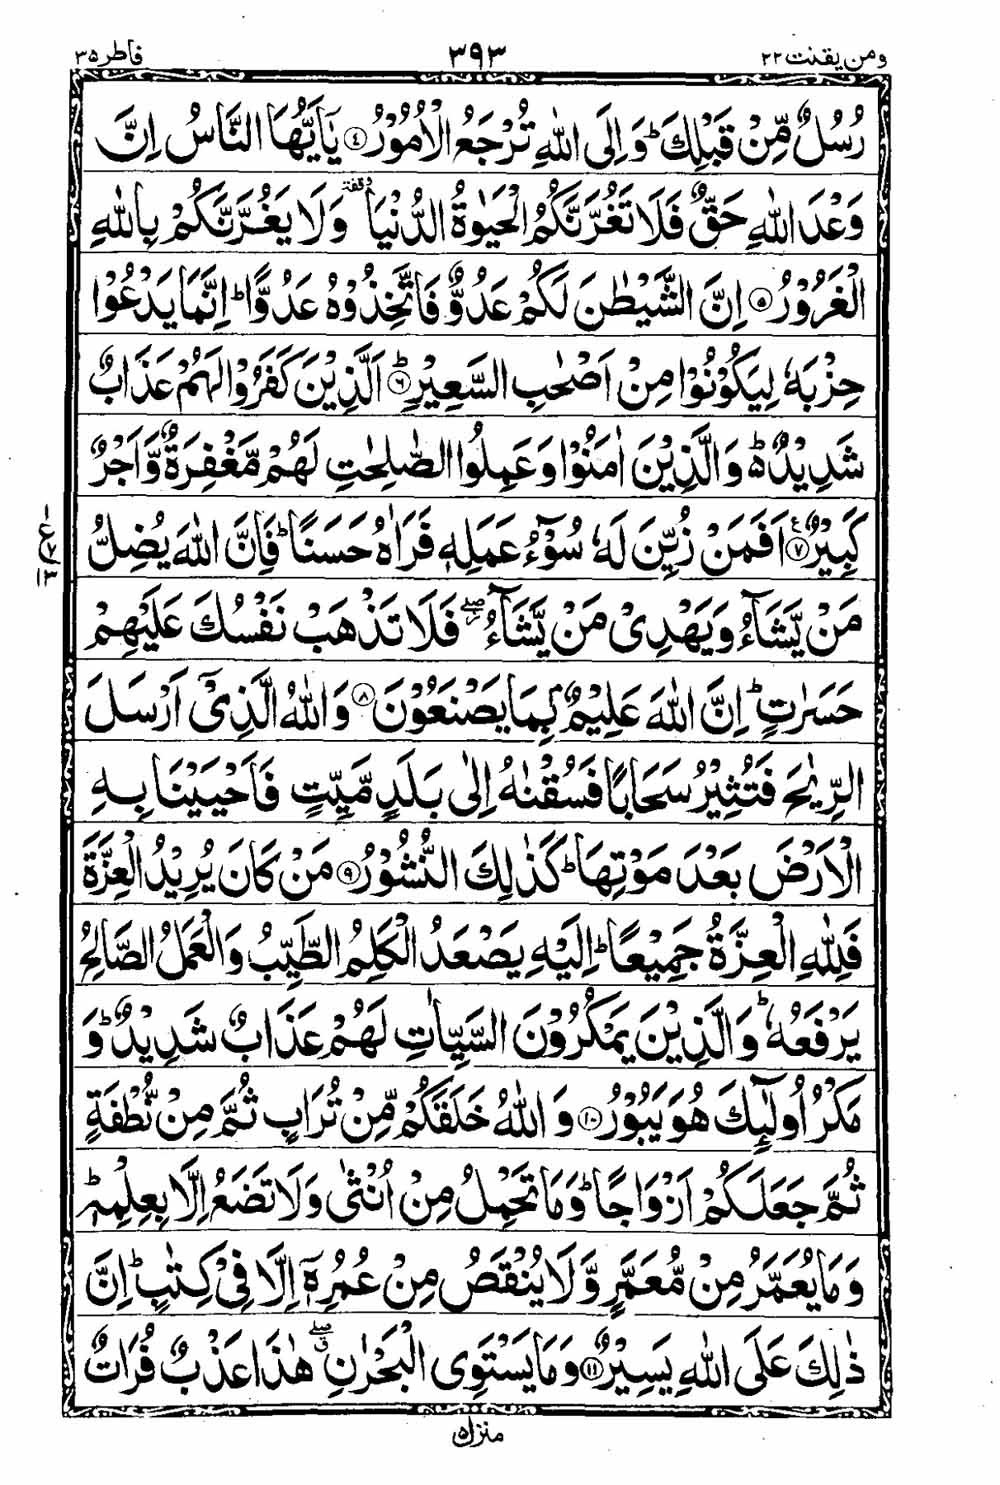 ومن يقنت ٢٢
٣٩٣
فاطر ٣٥
رُسُلٌ مِّنْ قَبْلِكَ ؕ وَاِلَى اللّٰهِ تُرْجَعُ الْاُمُوْرُ ﴿٤﴾ يٰۤاَيُّهَا النَّاسُ اِنَّ
وَعْدَ اللّٰهِ حَقٌّ فَلَا تَغُرَّنَّكُمُ الْحَيٰوةُ الدُّنْيَا ۥوقفة وَلَا يَغُرَّنَّكُمْ بِاللّٰهِ
الْغَرُوْرُ ﴿٥﴾ اِنَّ الشَّيْطٰنَ لَكُمْ عَدُوٌّ فَاتَّخِذُوْهُ عَدُوًّا ؕ اِنَّمَا يَدْعُوْا
حِزْبَهٗ لِيَكُوْنُوْا مِنْ اَصْحٰبِ السَّعِيْرِ ﴿٦﴾ؕ اَلَّذِيْنَ كَفَرُوْا لَهُمْ عَذَابٌ
شَدِيْدٌ ۬ؕ وَالَّذِيْنَ اٰمَنُوْا وَعَمِلُوا الصّٰلِحٰتِ لَهُمْ مَّغْفِرَةٌ وَّاَجْرٌ
كَبِيْرٌ ﴿٧﴾ع اَفَمَنْ زُيِّنَ لَهٗ سُوْٓءُ عَمَلِهٖ فَرَاٰهُ حَسَنًا ؕ فَاِنَّ اللّٰهَ يُضِلُّ
مَنْ يَّشَآءُ وَيَهْدِىْ مَنْ يَّشَآءُ ۖ فَلَا تَذْهَبْ نَفْسُكَ عَلَيْهِمْ
حَسَرٰتٍ ؕ اِنَّ اللّٰهَ عَلِيْمٌۢ بِمَا يَصْنَعُوْنَ ﴿٨﴾ وَاللّٰهُ الَّذِىْۤ اَرْسَلَ
الرِّيٰحَ فَتُثِيْرُ سَحَابًا فَسُقْنٰهُ اِلٰى بَلَدٍ مَّيِّتٍ فَاَحْيَيْنَا بِهِ
الْاَرْضَ بَعْدَ مَوْتِهَا ؕ كَذٰلِكَ النُّشُوْرُ ﴿٩﴾ مَنْ كَانَ يُرِيْدُ الْعِزَّةَ
فَلِلّٰهِ الْعِزَّةُ جَمِيْعًا ؕ اِلَيْهِ يَصْعَدُ الْكَلِمُ الطَّيِّبُ وَالْعَمَلُ الصَّالِحُ
يَرْفَعُهٗ ؕ وَالَّذِيْنَ يَمْكُرُوْنَ السَّيِّاٰتِ لَهُمْ عَذَابٌ شَدِيْدٌ ؕ وَ
مَكْرُ اُولٰٓئِكَ هُوَ يَبُوْرُ ﴿١٠﴾ وَاللّٰهُ خَلَقَكُمْ مِّنْ تُرَابٍ ثُمَّ مِنْ نُّطْفَةٍ
ثُمَّ جَعَلَكُمْ اَزْوَاجًا ؕ وَمَا تَحْمِلُ مِنْ اُنْثٰى وَلَا تَضَعُ اِلَّا بِعِلْمِهٖ ؕ
وَمَا يُعَمَّرُ مِنْ مُّعَمَّرٍ وَّلَا يُنْقَصُ مِنْ عُمُرِهٖۤ اِلَّا فِىْ كِتٰبٍ ؕ اِنَّ
ذٰلِكَ عَلَى اللّٰهِ يَسِيْرٌ ﴿١١﴾ وَمَا يَسْتَوِى الْبَحْرٰنِ ۖ هٰذَا عَذْبٌ فُرَاتٌ
منزل ٥